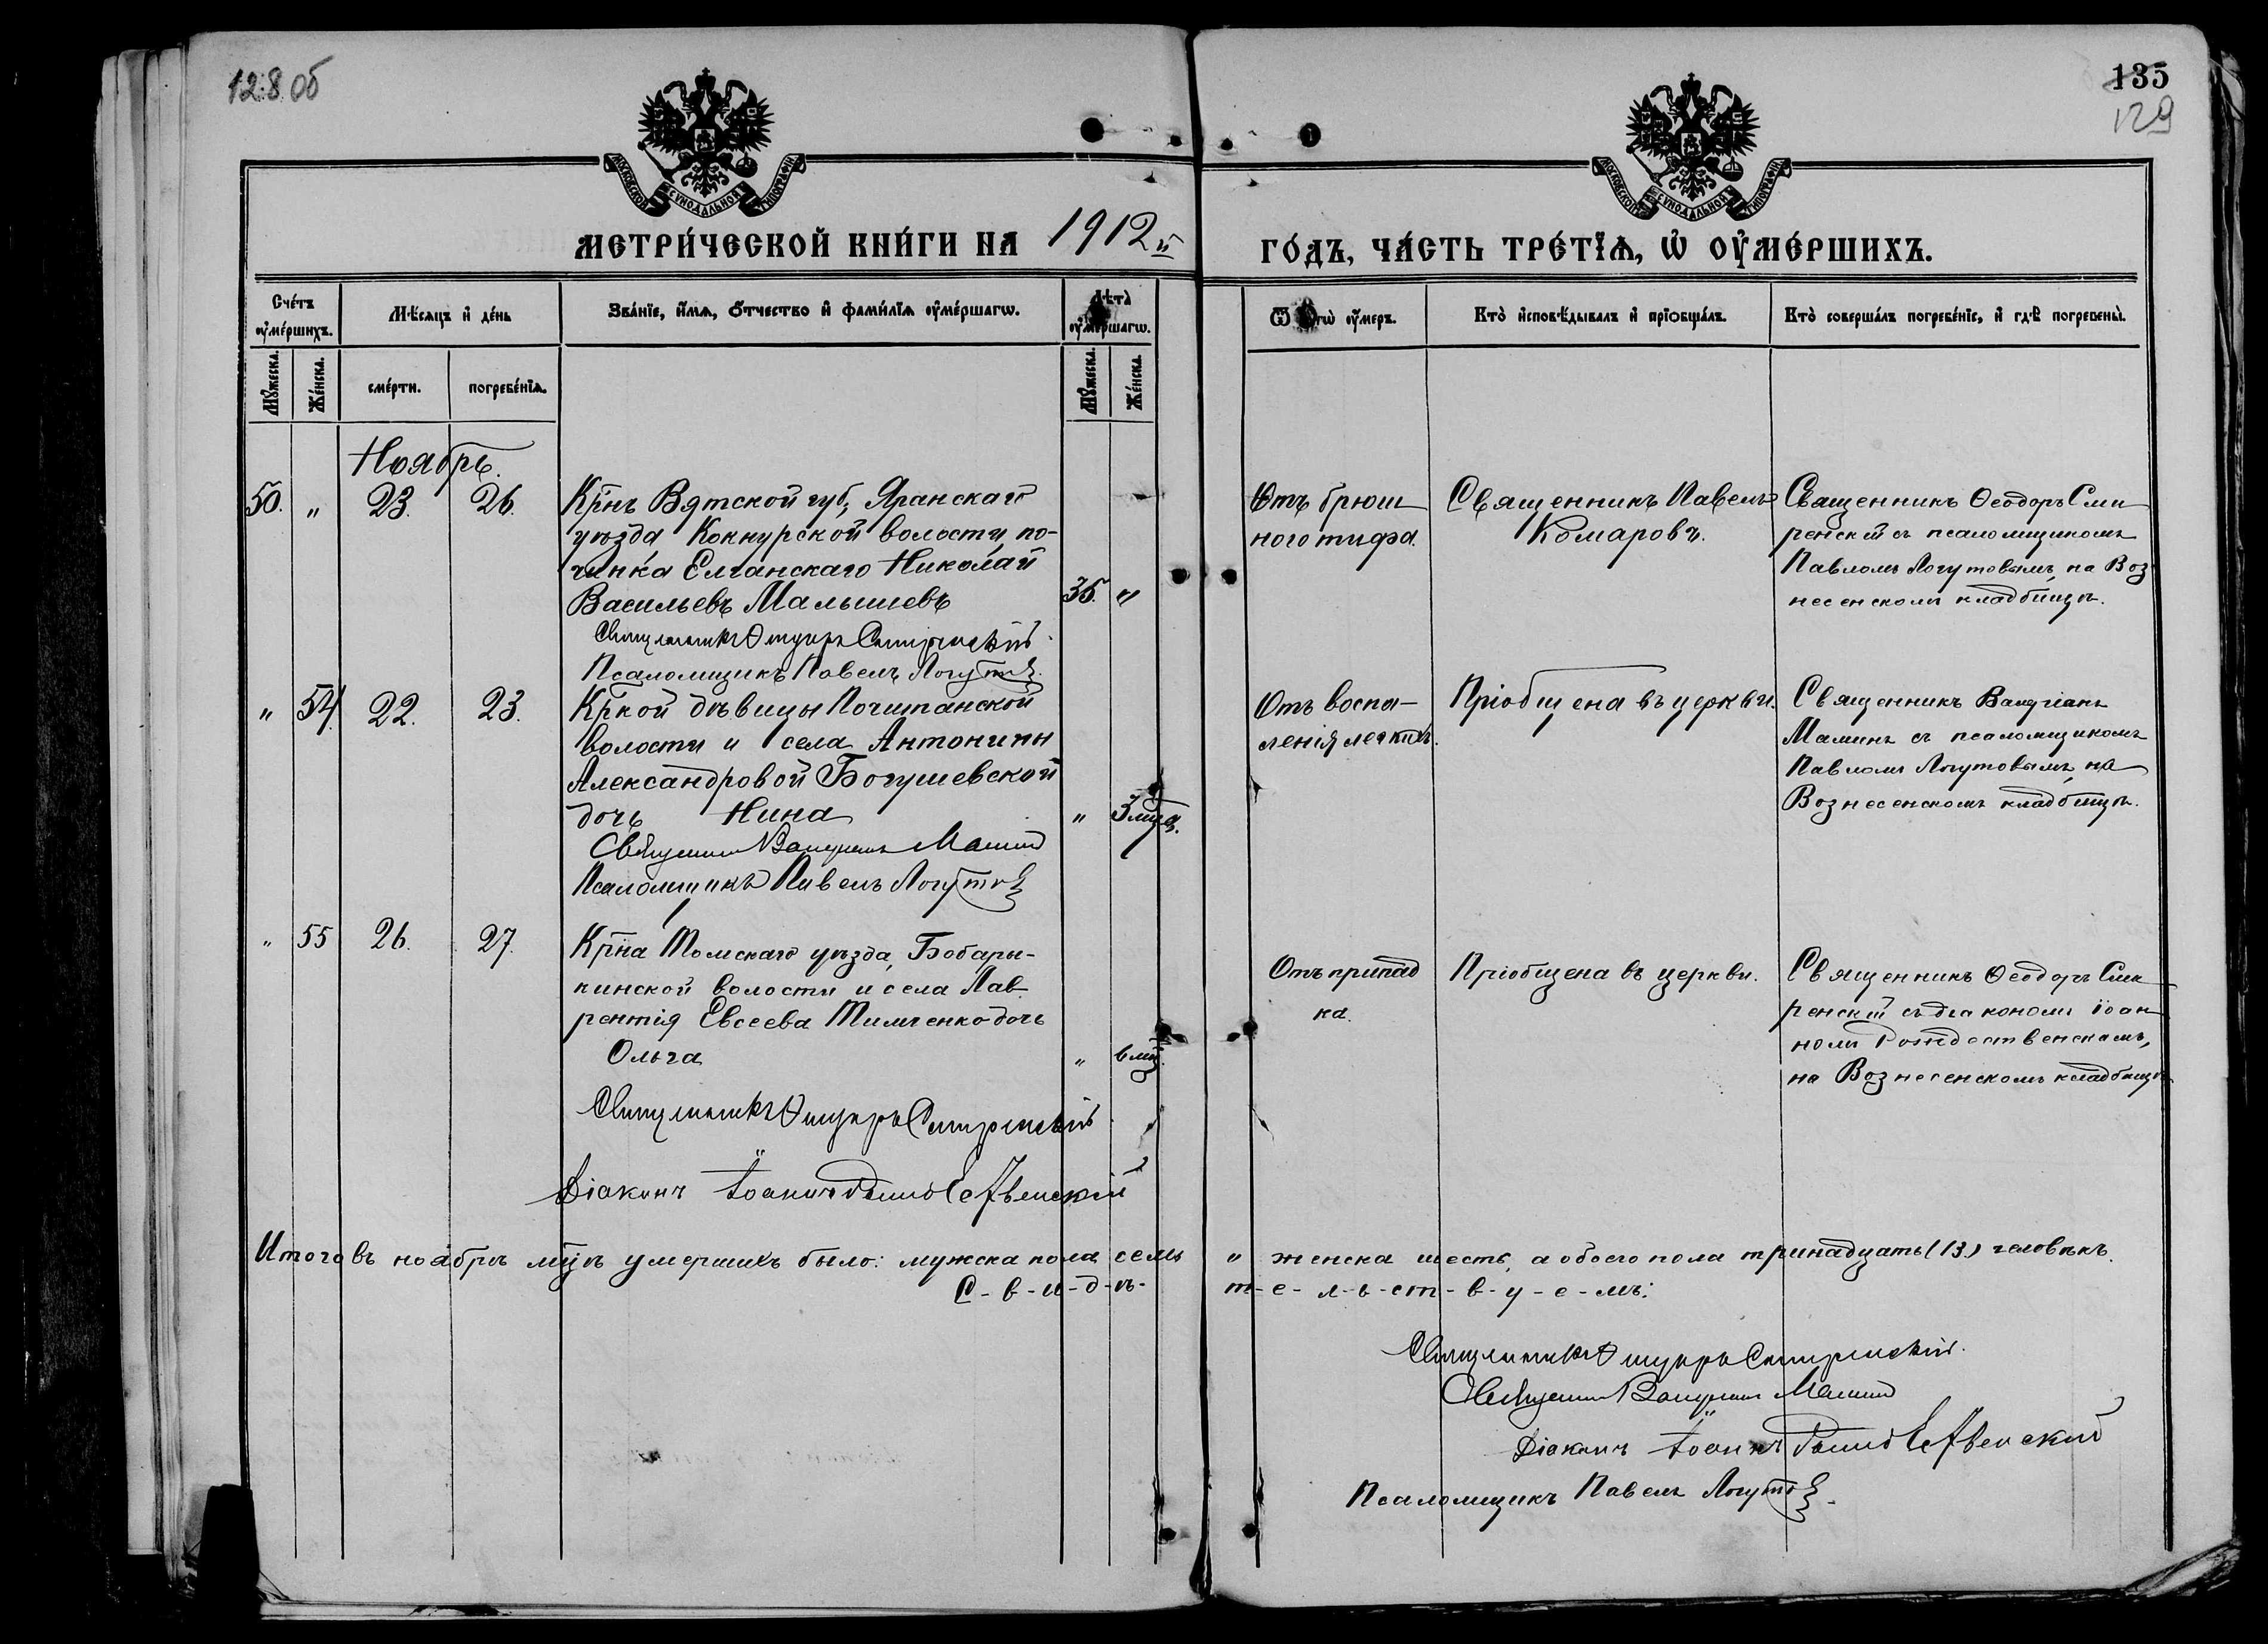 128 об
135
129
МОСКОВСКОЙ СѴНОДАЛЬНОЙ ТИПОГРАФІИ
МОСКОВСКОЙ СѴНОДАЛЬНОЙ ТИПОГРАФІИ
МЕТРИ́ЧЕСКОЙ КНИ́ГИ НА 1912й ГО́ДЪ, ЧА́СТЬ ТРЕ́ТЇѦ, Ѡ҆ ОУ҆МЕ́РШИХЪ.
Сче́тъ оу҆ме́ршихъ.
Мѣ́сѧцъ и҆ де́нь
Зва́нїе, и҆́мѧ, ѻ҆́тчество и҆ фами́лїѧ оу҆ме́ршагѡ.
Лѣ́та оу҆ме́ршагѡ.
Ѿ чегѡ̀ оу҆́меръ.
Кто̀ и҆сповѣ́дывалъ и҆ прїѻбща́лъ.
Кто̀ соверша́лъ погребе́нїе, и҆ гдѣ̀ погребены̀.
Мꙋ́жеска.
Же́нска.
сме́рти.
погребе́нїѧ.
Мꙋ́жеска.
Же́нска.
Ноябрь.
50. " 23. 26.
Кр̃нъ Вятской губ., Яранскаго
уѣзда Кокнурской волости, по-
чинка Елганскаго Николай
Васильевъ Малышевъ 35. "
Священникъ Ѳеодоръ Смиренскій
Псаломщикъ Павелъ Логутов.
Отъ брюш
ного тифа.
Священникъ Павелъ
Комаровъ.
Священникъ Ѳеодоръ Сми
ренскій съ псаломщикомъ
Павломъ Логутовымъ, на Воз
несенскомъ кладбищѣ.
" 54. 22. 23.
Кр̃кой дѣвицы Почитанской
волости и села Антонины
Александровой Богушевской
дочь Нина " 3 мца.
Священникъ Мамин
Псаломщикъ Павелъ Логутов
Отъ воспа-
ленія легкихъ.
Пріобщена въ церкви.
Священникъ
Маминъ съ псаломщикомъ
Павломъ Логутовымъ, на
Вознесенскомъ кладбищѣ.
" 55 26. 27.
Кр̃на Томскаго уѣзда, Бобары-
кинской волости и села Лав
рентія Евсеева Тимченко дочь
Ольга " 6 мц.
Священникъ Ѳеодоръ Смиренскій
Діаконъ Іоаннъ Рождественскій
Отъ припад
ка.
Пріобщена въ церкви.
Священникъ Ѳеодоръ Сми
ренскій съ діакономъ Іоан
номъ Рождественскимъ,
на Вознесенскомъ кладбищѣ
Итого въ ноябрѣ мцѣ умершихъ было: мужска пола семь " женска шесть, а обоего пола тринадцать (13) человѣкъ.
С-в-и-д-ѣ-т-е-л-ь-ст-в-у-е-мъ:
Священникъ Ѳеодоръ Смиренскій.
Священникъ Мамин
Діаконъ Іоаннъ Рождественский
Псаломщикъ Павелъ Логутов.